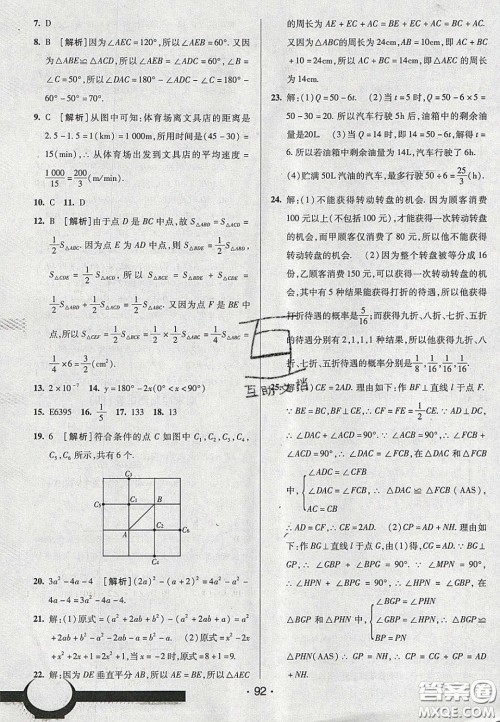 7. D
8. B [解析]因为∠AEC=120°,所以∠AEB=60°.又因为△ADC≌△AEB,所以∠ADC=∠AEB=60°,∠B=∠C=50°,所以∠DAC=180°-∠ADC-∠C=180°-60°-50°=70°.
9. C [解析]从图中可知:体育场离文具店的距离是
2.5-1.5=1(km)=1 000 m,所用时间是(45-30)=
15(min),∴从体育场出发到文具店的平均速度=
1 000/15=200/3(m/min).
10. C 11. D
12. B [解析]由于点D是BC中点,故S△ABD=S△ACD=
1/2 S△ABC.因为E为AD中点,所以S△BDE=S△ABE,
S△CDE=S△ACE,所以S△BCE=S△BDE+S△CDE=
1/2 S△ABD+1/2 S△ACD=1/2 S△ABC.又因为点F是BE中
点,所以S△CEF=1/2 S△BCE=1/2×1/2 S△ABC=
1/4×6=3/2(cm²).
13. 2×10⁻⁷ 14. y=180°-2x(0°<x<90°)
15. E6395 16. 1/5 17. 133 18. 13
19. 6 [解析]符合条件的点C如图中C₁,C₂,C₃,C₄,
C₅,C₆所示,共有6个.
C₅ C₁ C₃ B A C₂ C₆ C₄
20. 3a²-4a-4 [解析](2a)²-(a+2)²=4a²-a²-
4a-4=3a²-4a-4.
21. 解:(1)原式=(a²+2ab+b²)-(a²-2ab+b²)=a²
+2ab+b²-a²+2ab-b²=4ab. (2)原式=x²-2x
+x²+2x+1=2x²+1.当x=2时,原式=8+1=9.
22. 解:因为DE垂直平分AB,所以AE=BE,所以△AEC
的周长=AE+EC+AC=BE+EC+AC=BC+AC.
又因为△ABC的周长=24cm,AB=10cm,所以AC+BC
+10=24cm,所以AC+BC=14cm,即△AEC的周长
=14cm.
23. 解:(1)Q=50-6t. (2)当t=5时,Q=50-6t=50
-6×5=20,所以汽车行驶5h后,油箱中的剩余油
量是20L. (3)当Q=14时,14=50-6t,所以t=
6.所以当油箱中剩余油量为14L,汽车行驶了6h.
(4)贮满50L汽油的汽车,最多行驶50÷6=25/3(h).
24. 解:(1)不能获得转动转盘的机会.因为顾客消费
100元以上(不包括100元),才能获得一次转动转盘
的机会,而甲顾客消费了80元,所以不能获得转动
转盘的机会. (2)因为整个转盘被等分成了16
份,乙顾客消费150元,可以获得一次转动转盘的机
会,其中有5种结果能获得打折的待遇,所以能获得
打折待遇的概率是5/16;一共有16种等可能的结果,
获得九折、八折、七折、五折待遇分别有2种、1种、1
种、1种,所以乙顾客获得九折、八折、七折、五折待
遇的概率分别为1/8,1/16,1/16,1/16.
25. 解:(1)CE=2AD.理由如下:作BF⊥直线l于点F.
∵BF⊥CE,∴CF=EF=1/2 CE.∵∠ACB=90°,∴
∠DAC+∠ACD=90°.又∵∠FCB+∠ACD=
90°,∴∠DAC=∠FCB,在△DAC和△FCB
中,{∠ADC=∠CFB ∠DAC=∠FCB AC=CB,∴△DAC≌△FCB(AAS),
∴AD=CF,∴CE=2AD. (2)CP=AD+NH.理由
如下:作BG⊥直线l于点G,由(1)得,△DAC≌
△GCB,∴CG=AD.∵BG⊥l,∠MPN=90°,∴
∠HPN+∠BPG=90°,∠GBP+∠BPG=90°,∴
∠HPN=∠GBP,在
△BGP和△PHN中,{∠BGP=∠PHN ∠GBP=∠HPN BP=PN,∴△BGP≌
△PHN(AAS),∴GP=NH,∴CP=CG+GP=AD
+NH.
· 92 ·
互助文档
答案圈
MXQE.COM